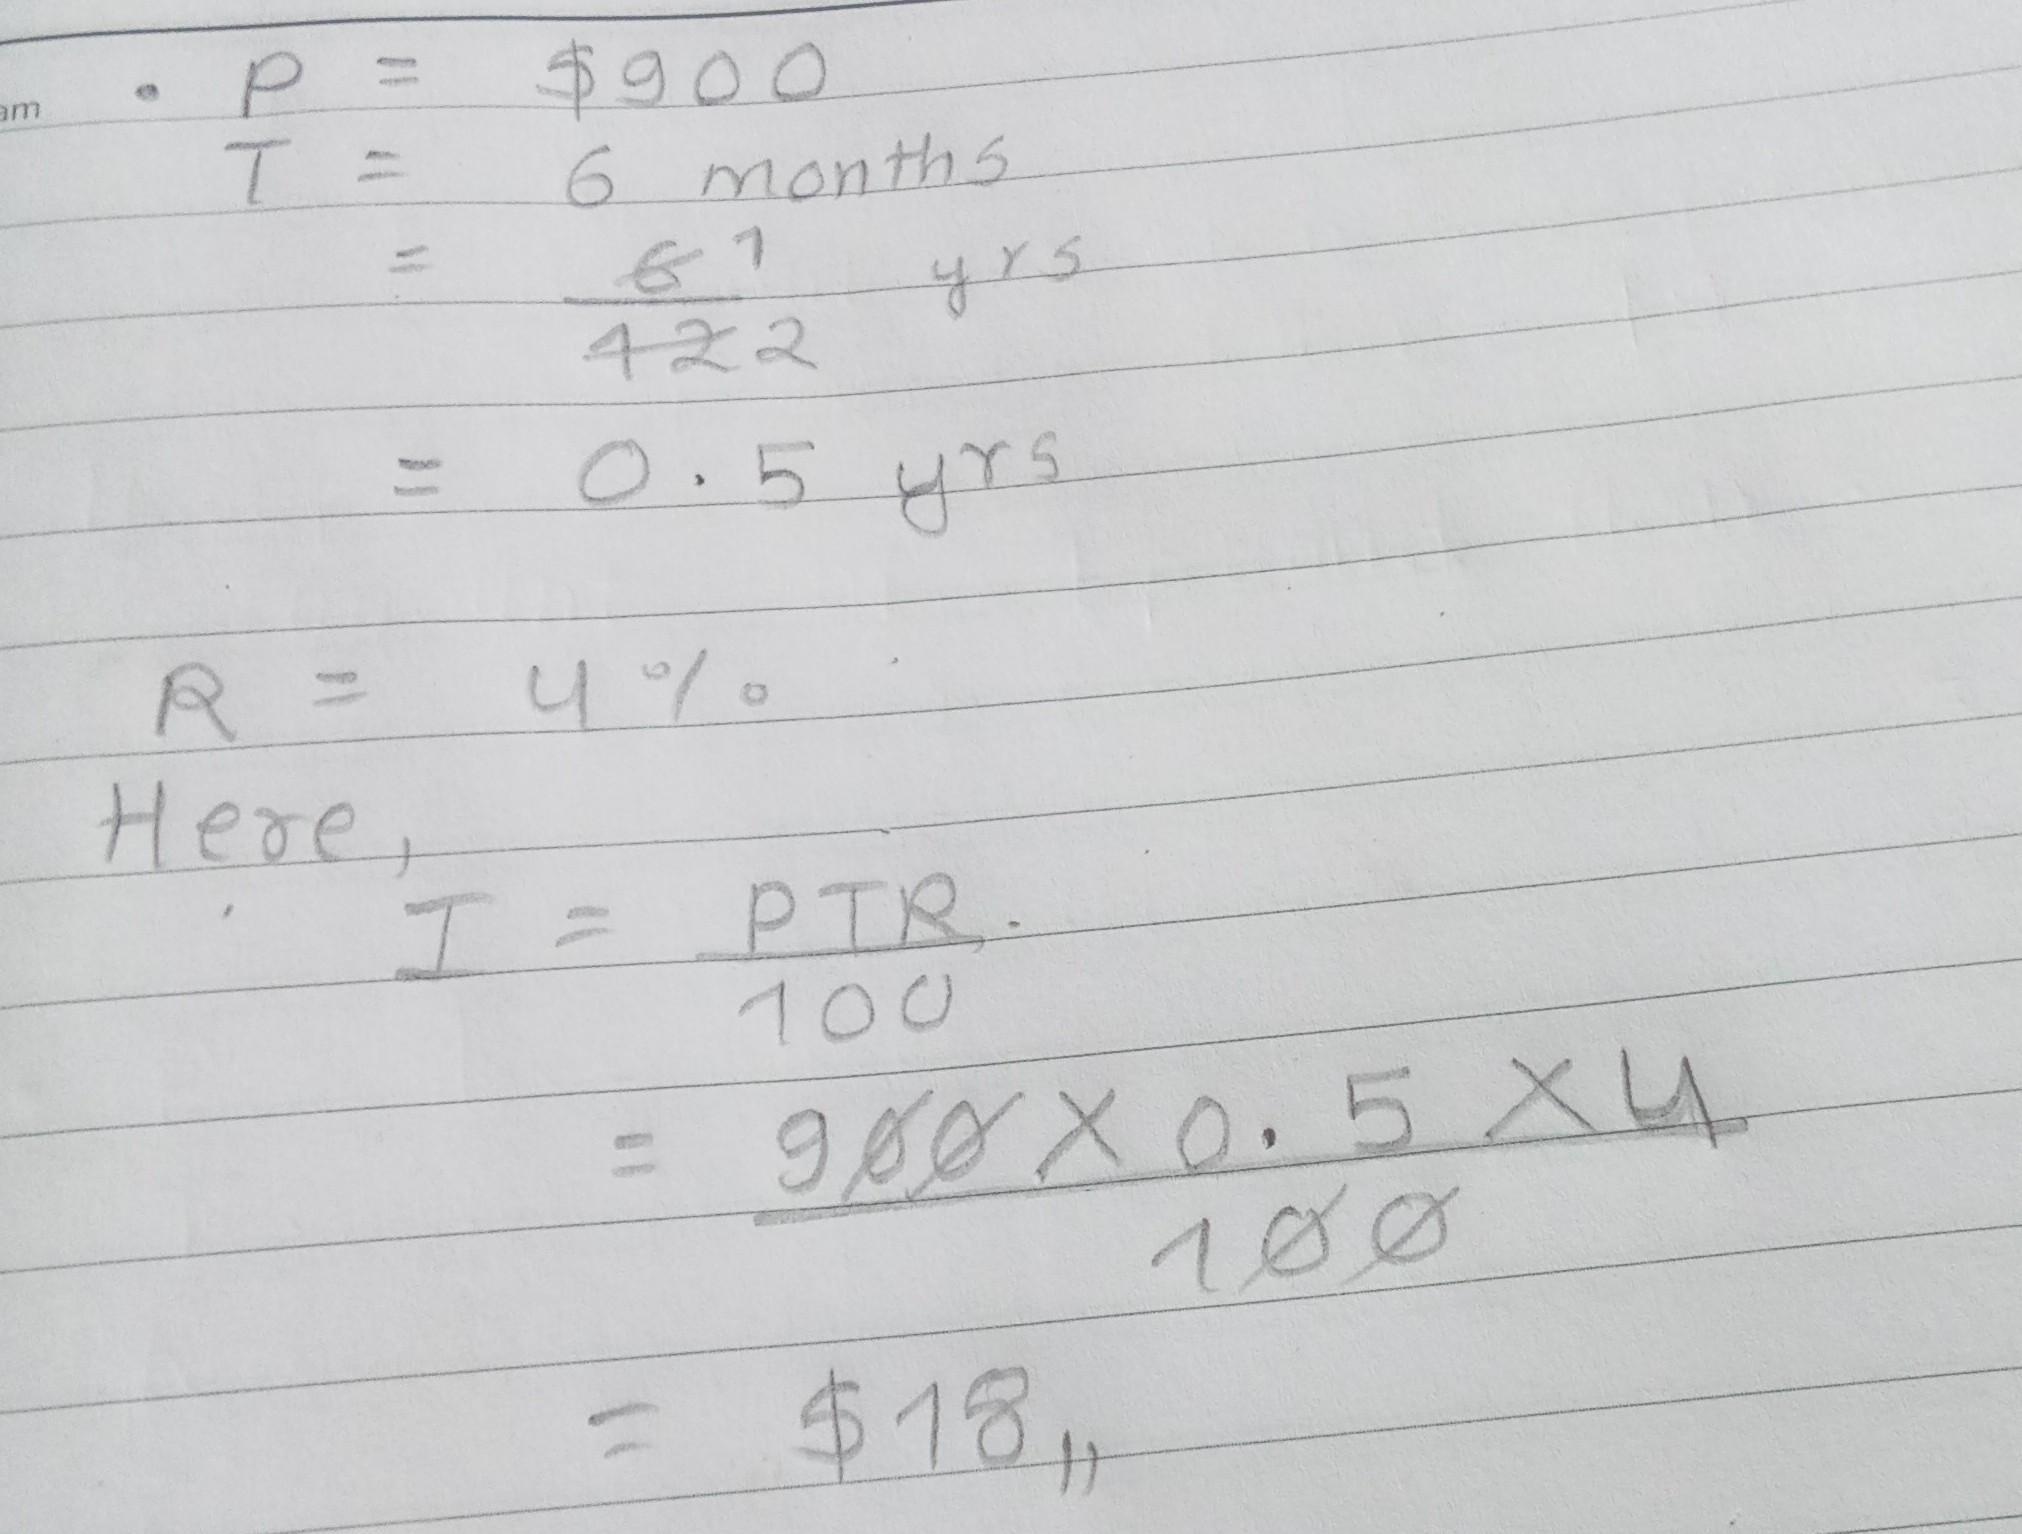 am
• P = $900
T = 6 months
= 6 1 yrs
12 2
= 0.5 yrs
R = 4%
Here,
I = PTR.
100
= 900 X 0.5 X 4
100
= $18,,